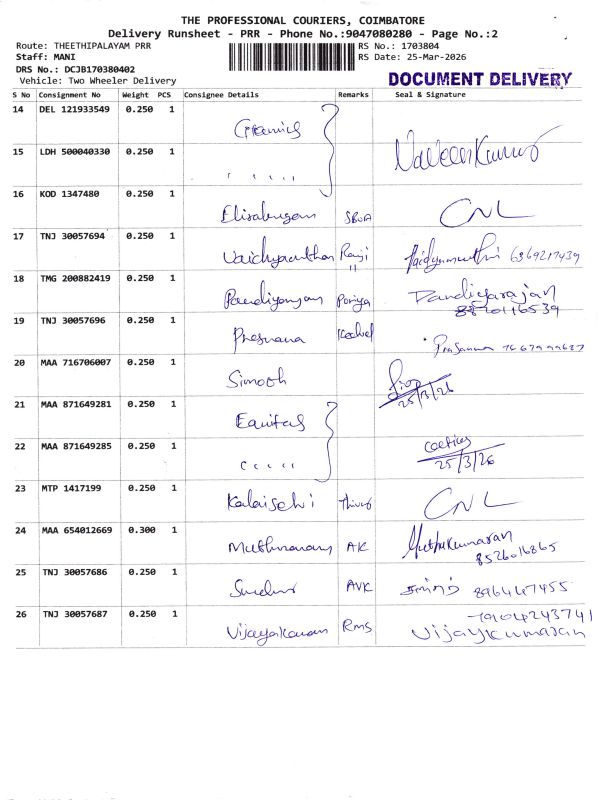 THE PROFESSIONAL COURIERS, COIMBATORE
Delivery Runsheet - PRR - Phone No.:9047080280 - Page No.:2
Route: THEETHIPALAYAM PRR
Staff: MANI
DRS No.: DCJB170380402
Vehicle: Two Wheeler Delivery
RS No.: 1703804
RS Date: 25-Mar-2026
DOCUMENT DELIVERY
S No Consignment No Weight PCS Consignee Details Remarks Seal & Signature
14 DEL 121933549 0.250 1
15 LDH 500040330 0.250 1
16 KOD 1347480 0.250 1 CNL
17 TNJ 30057694 0.250 1 6369217439
18 TMG 200882419 0.250 1 Pandiyarajan
19 TNJ 30057696 0.250 1 Prasanna
20 MAA 716706007 0.250 1 25/3/26
21 MAA 871649281 0.250 1 Equitas
22 MAA 871649285 0.250 1 25/3/26
23 MTP 1417199 0.250 1 CNL
24 MAA 654012669 0.300 1 AK Muthukumaran
8526016865
25 TNJ 30057686 0.250 1 AVK 8964647455
26 TNJ 30057687 0.250 1 Rms 7904243741
Vijaykumaran